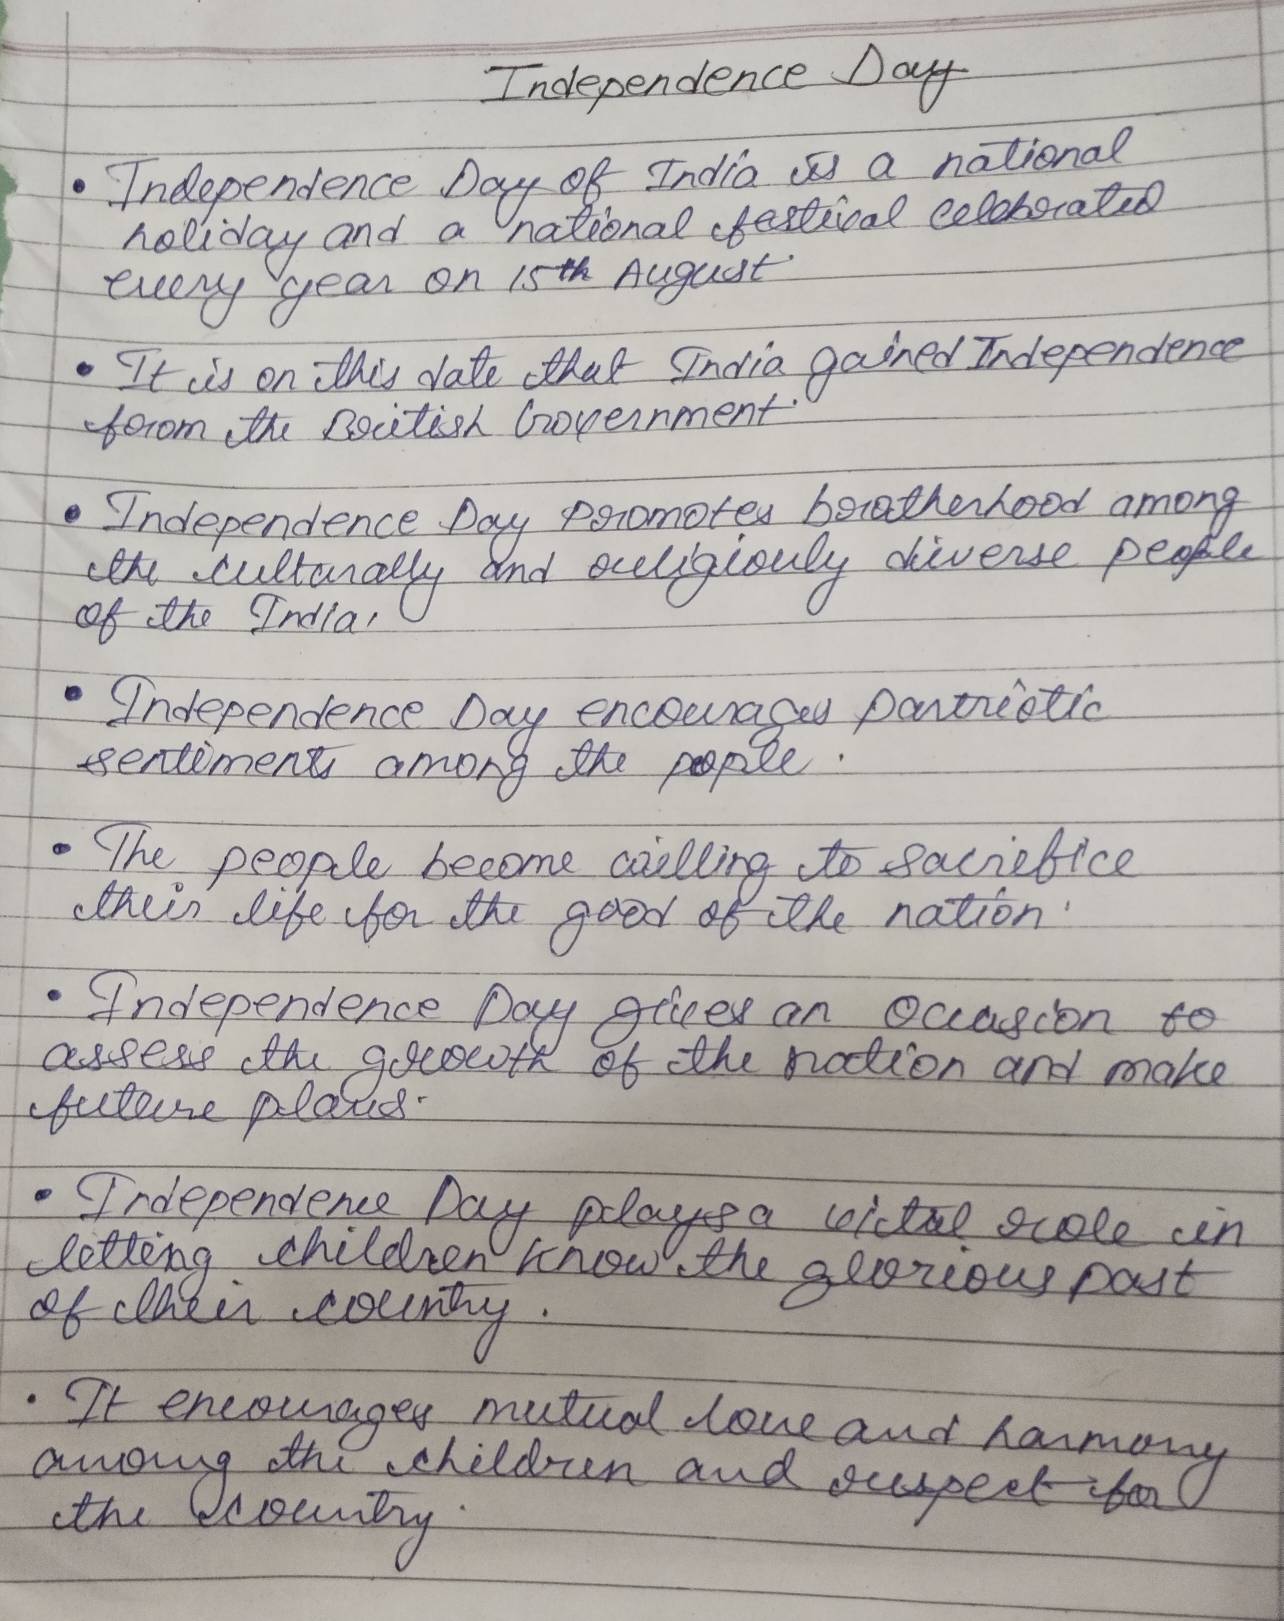 Independence Day
• Independence Day of India is a national
holiday and a national festival celebrated
every year on 15th August.
• It is on this date that India gained Independence
from the British Government.
• Independence Day Promotes brotherhood among
the culturally and religiouly diverse people
of the India.
• Independence Day encourages pantriotic
sentiments among the people.
• The people become willing to sacriefice
their life for the good of the nation.
• Independence Day gives an occasion to
assess the growth of the nation and make
future plans.
• Independence Day plays a victal role in
letting children know the glorious past
of their country.
• It encourages mutual love and harmony
among the children and respect for
the country.